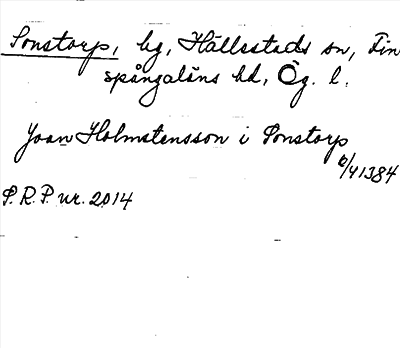 Sonstorp, by, Hällestads sn, Fin
spångaläns hd, Ög. l.
Joan Holmstensson i Sonstorp
6/4 1384
S.R.P. nr. 2014